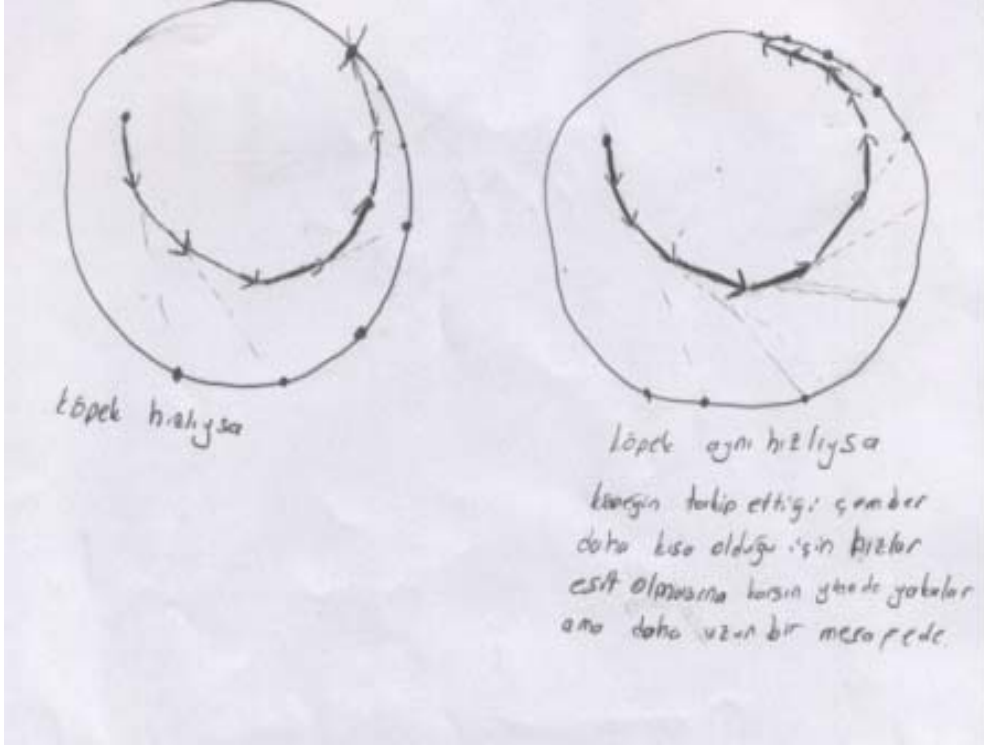 köpek hızlıysa
köpek aynı hızlıysa
köpeğin takip ettiği çember
daha kısa olduğu için hızlar
eşit olmasına karşın yinede yakalar
ama daha uzun bir mesafede.